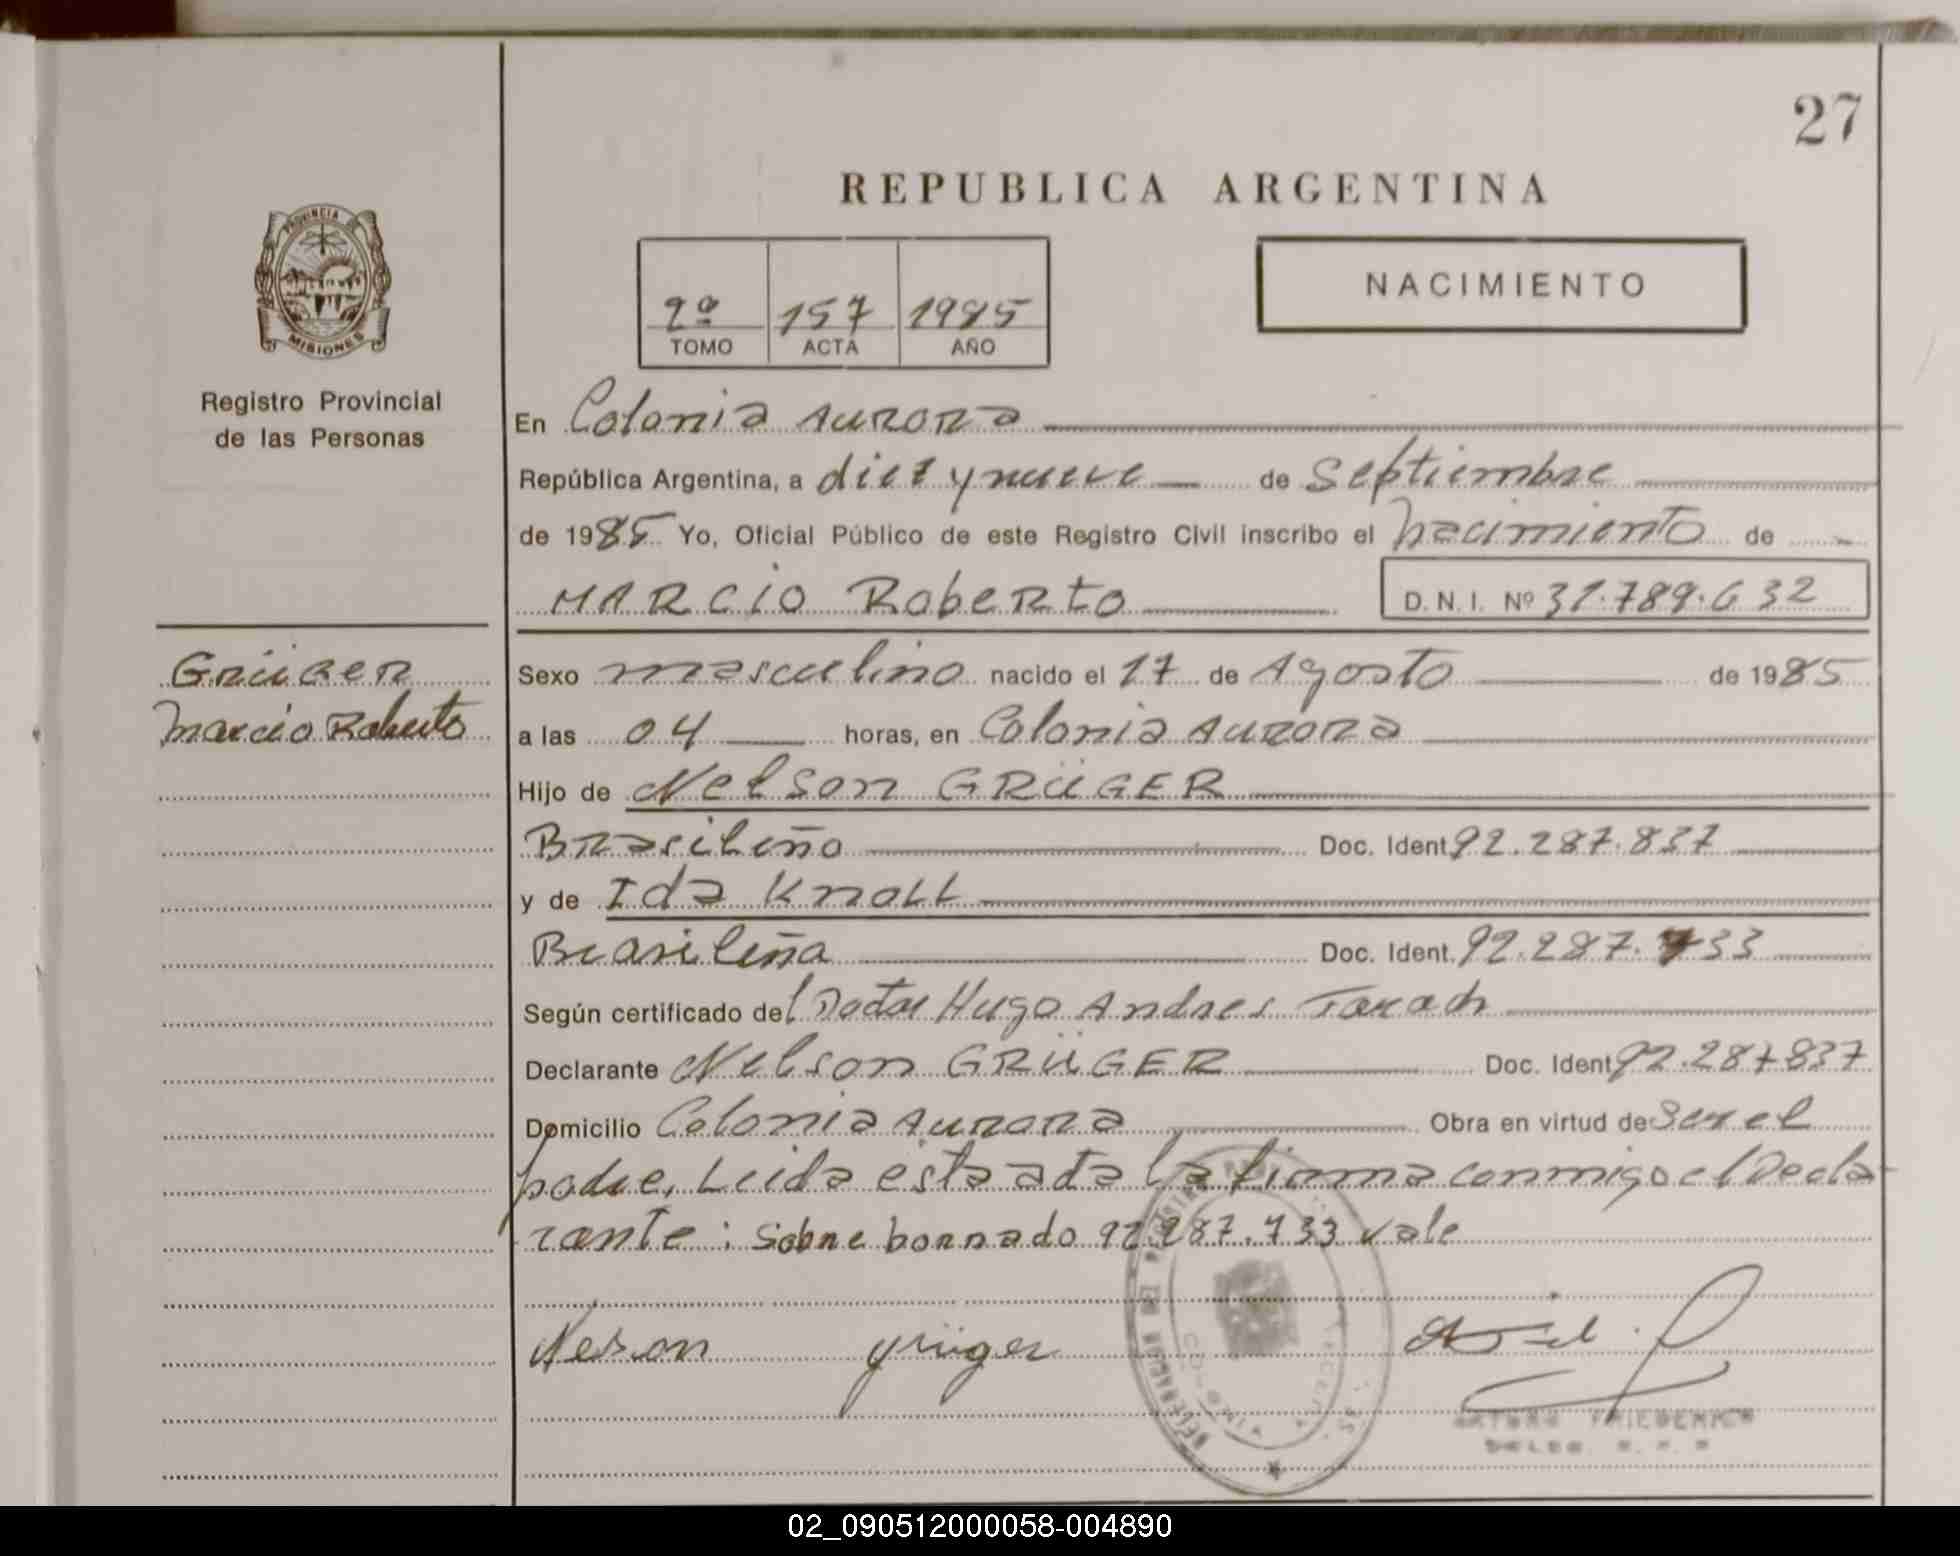 27
REPUBLICA ARGENTINA
PROVINCIA DE
MISIONES
Registro Provincial
de las Personas
2º 157 1985
TOMO ACTA AÑO
NACIMIENTO
En Colonia Aurora
República Argentina, a diez y nueve de Septiembre
de 1985 Yo, Oficial Público de este Registro Civil inscribo el Nacimiento de
MARCIO Roberto D.N.I. Nº 31.789.632
GRÜGER
Marcio Roberto
Sexo masculino nacido el 17 de Agosto de 1985
a las 04 horas, en Colonia Aurora
Hijo de Nelson GRÜGER
Brasileño Doc. Ident 92.287.837
y de Ida Knoll
Brasileña Doc. Ident. 92.287.733
Según certificado del Doctor Hugo Andres
Declarante Nelson GRÜGER Doc. Ident 92.287837
Domicilio Colonia Aurora Obra en virtud de Ser el
padre, Leida esta acta la firma conmigo el Decla
rante: Sobre borrado 92.287.733 vale
Neson grüger
ARTURO FRIEDERICH
02_090512000058-004890